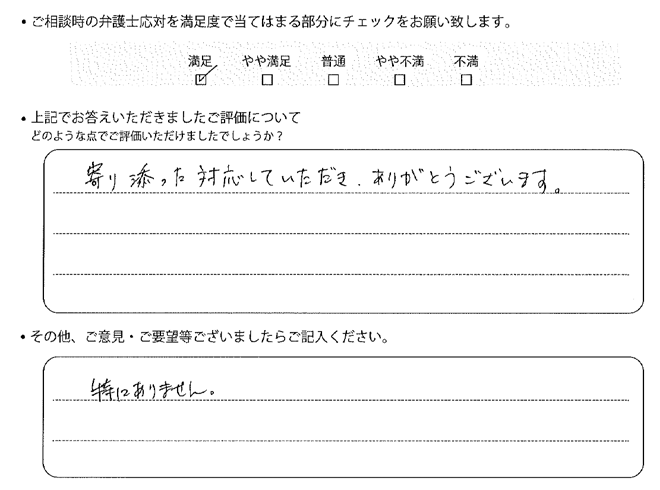 ・ご相談時の弁護士応対を満足度で当てはまる部分にチェックをお願い致します。
満足 やや満足 普通 やや不満 不満
☑ □ □ □ □
・上記でお答えいただきましたご評価について
どのような点でご評価いただけましたでしょうか？
寄り添った対応していただき、ありがとうございます。
・その他、ご意見・ご要望等ございましたらご記入ください。
特にありません。